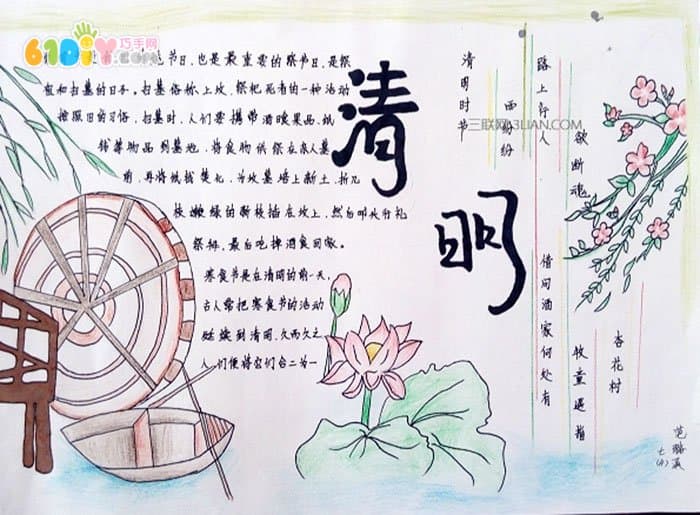 61DIY巧手网
节日,也是最重要的祭节日,是祭
祖和扫墓的日子。扫墓俗称上坟,祭祀死者的一种活动
按照旧的习俗,扫墓时,人们要携带酒馔果品,纸
钱等物品到墓地,将食物供祭在亲人墓
前,再将纸钱焚化,为坟墓培上新土,折几
枝嫩绿的新枝插在坟上,然后叩头行礼
祭拜,最后吃掉酒食回家。
寒食节是在清明的前一天,
古人常把寒食节的活动
延续到清明,久而久之
人们便将它们合二为一
清
明
清明时节
雨纷纷
路上行人
欲断魂
借问酒家何处有
牧童遥指
杏花村
三联网 3LIAN.COM